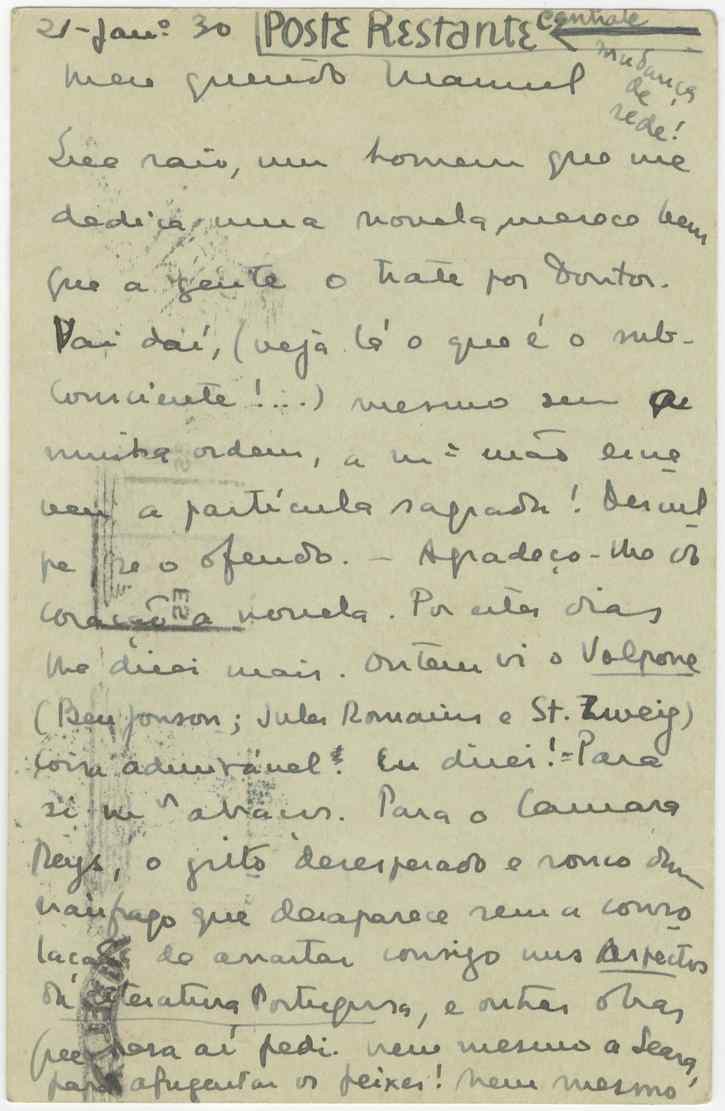 21-Janº 30 POSTE RESTANTE Centrale
mudança
de
sede!
Meu querido Manuel
raio, um homem que me
dedica uma novela, merece bem
que a gente o trate por Doutor.
Vai daí, (veja lá o que é o sub-
consciente!...) mesmo sem
minha ordem, a mª mão escre
veu a partícula sagrada! Descul
pe se o ofendo. - Agradeço-lhe do
coração a novela. Por estes dias
lhe direi mais. Ontem vi o Volpone
(Ben Jonson; Jules Romains e St. Zweig)
coisa admirável! Eu direi! = Para
si abraços. Para o Camara
Reys, o grito desesperado e rouco dum
naufrago que desaparece sem a conso
lação de arrastar consigo uns Aspectos
da Literatura Portuguesa, e outras obras
que para aí pedi. Nem mesmo a Seara,
para afugentar os peixes! Nem mesmo